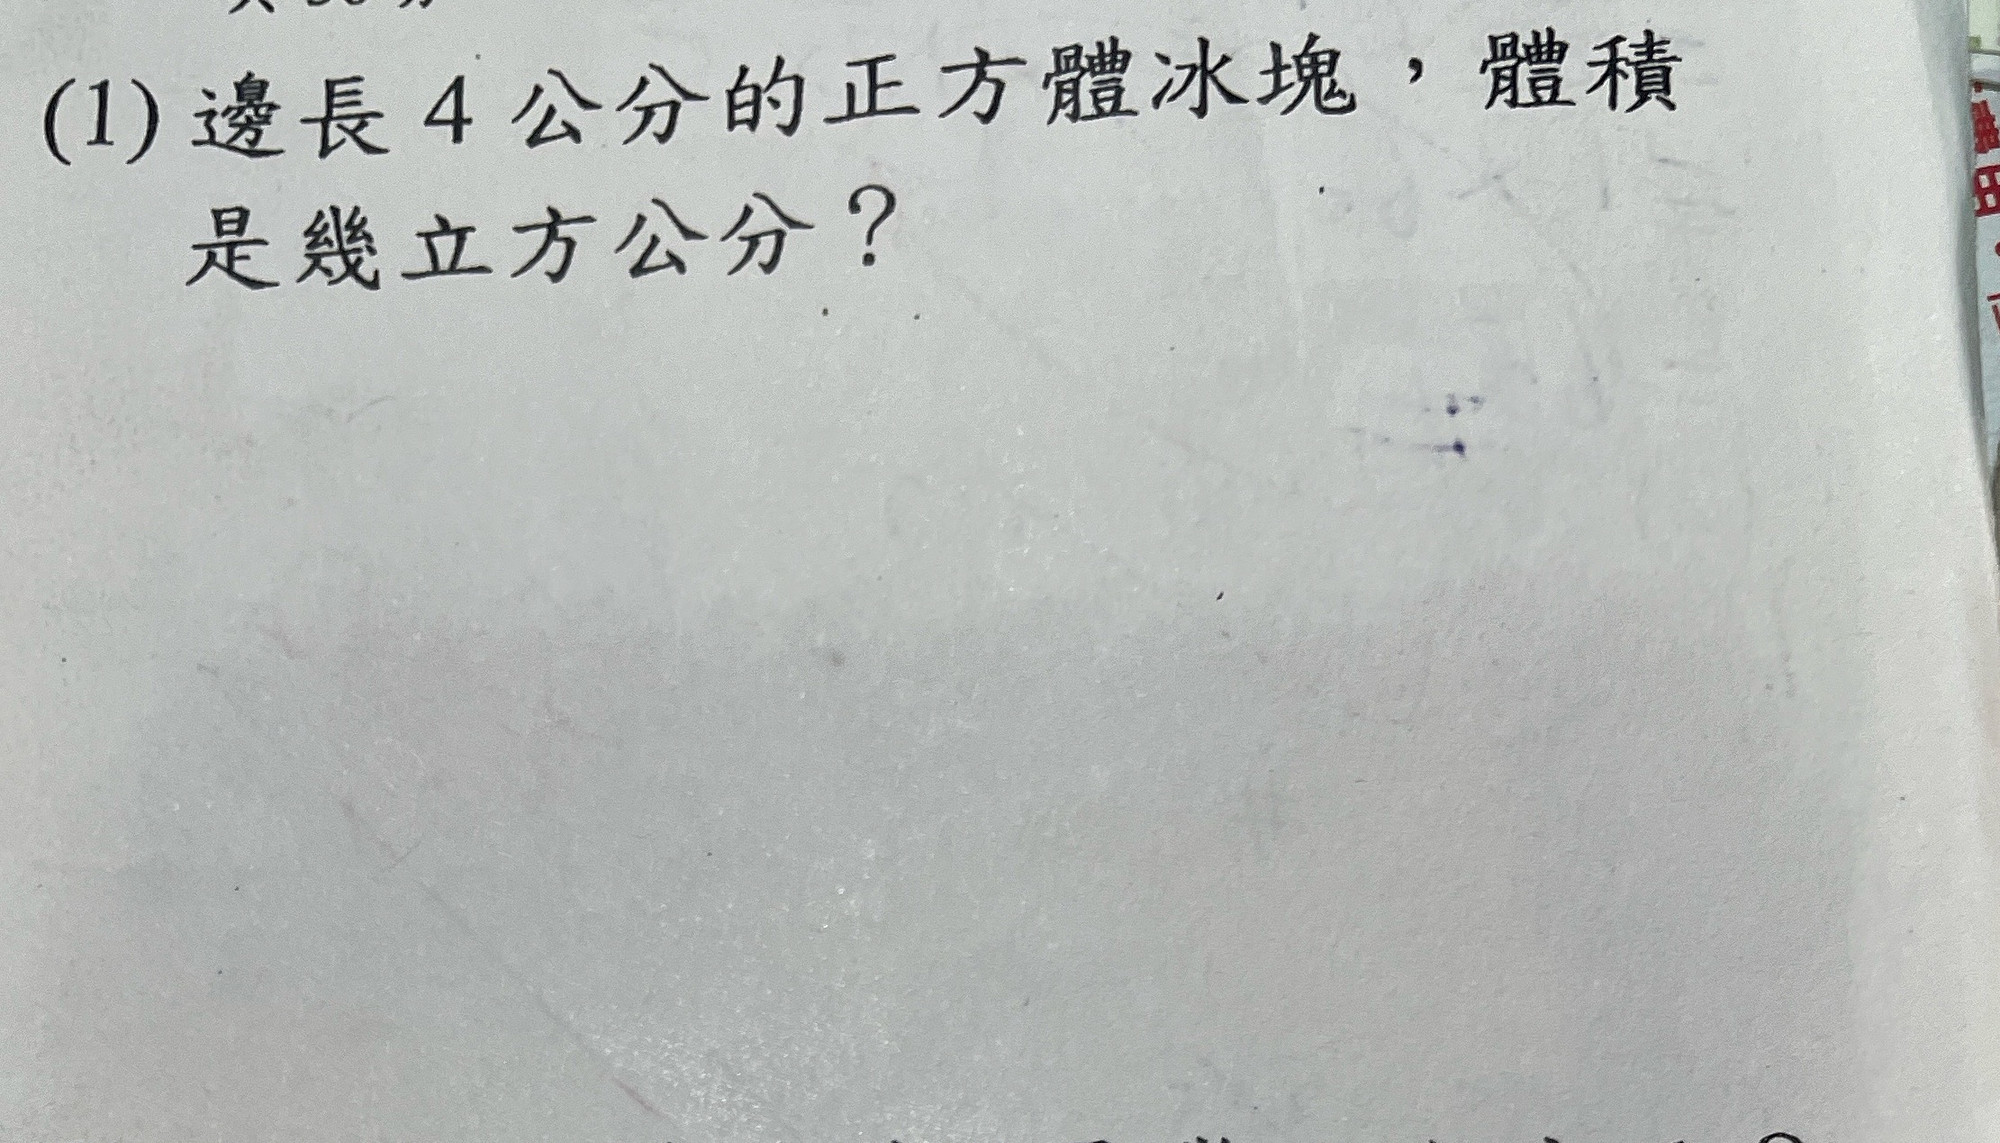 (1) 邊長 4 公分的正方體冰塊，體積
是幾立方公分？